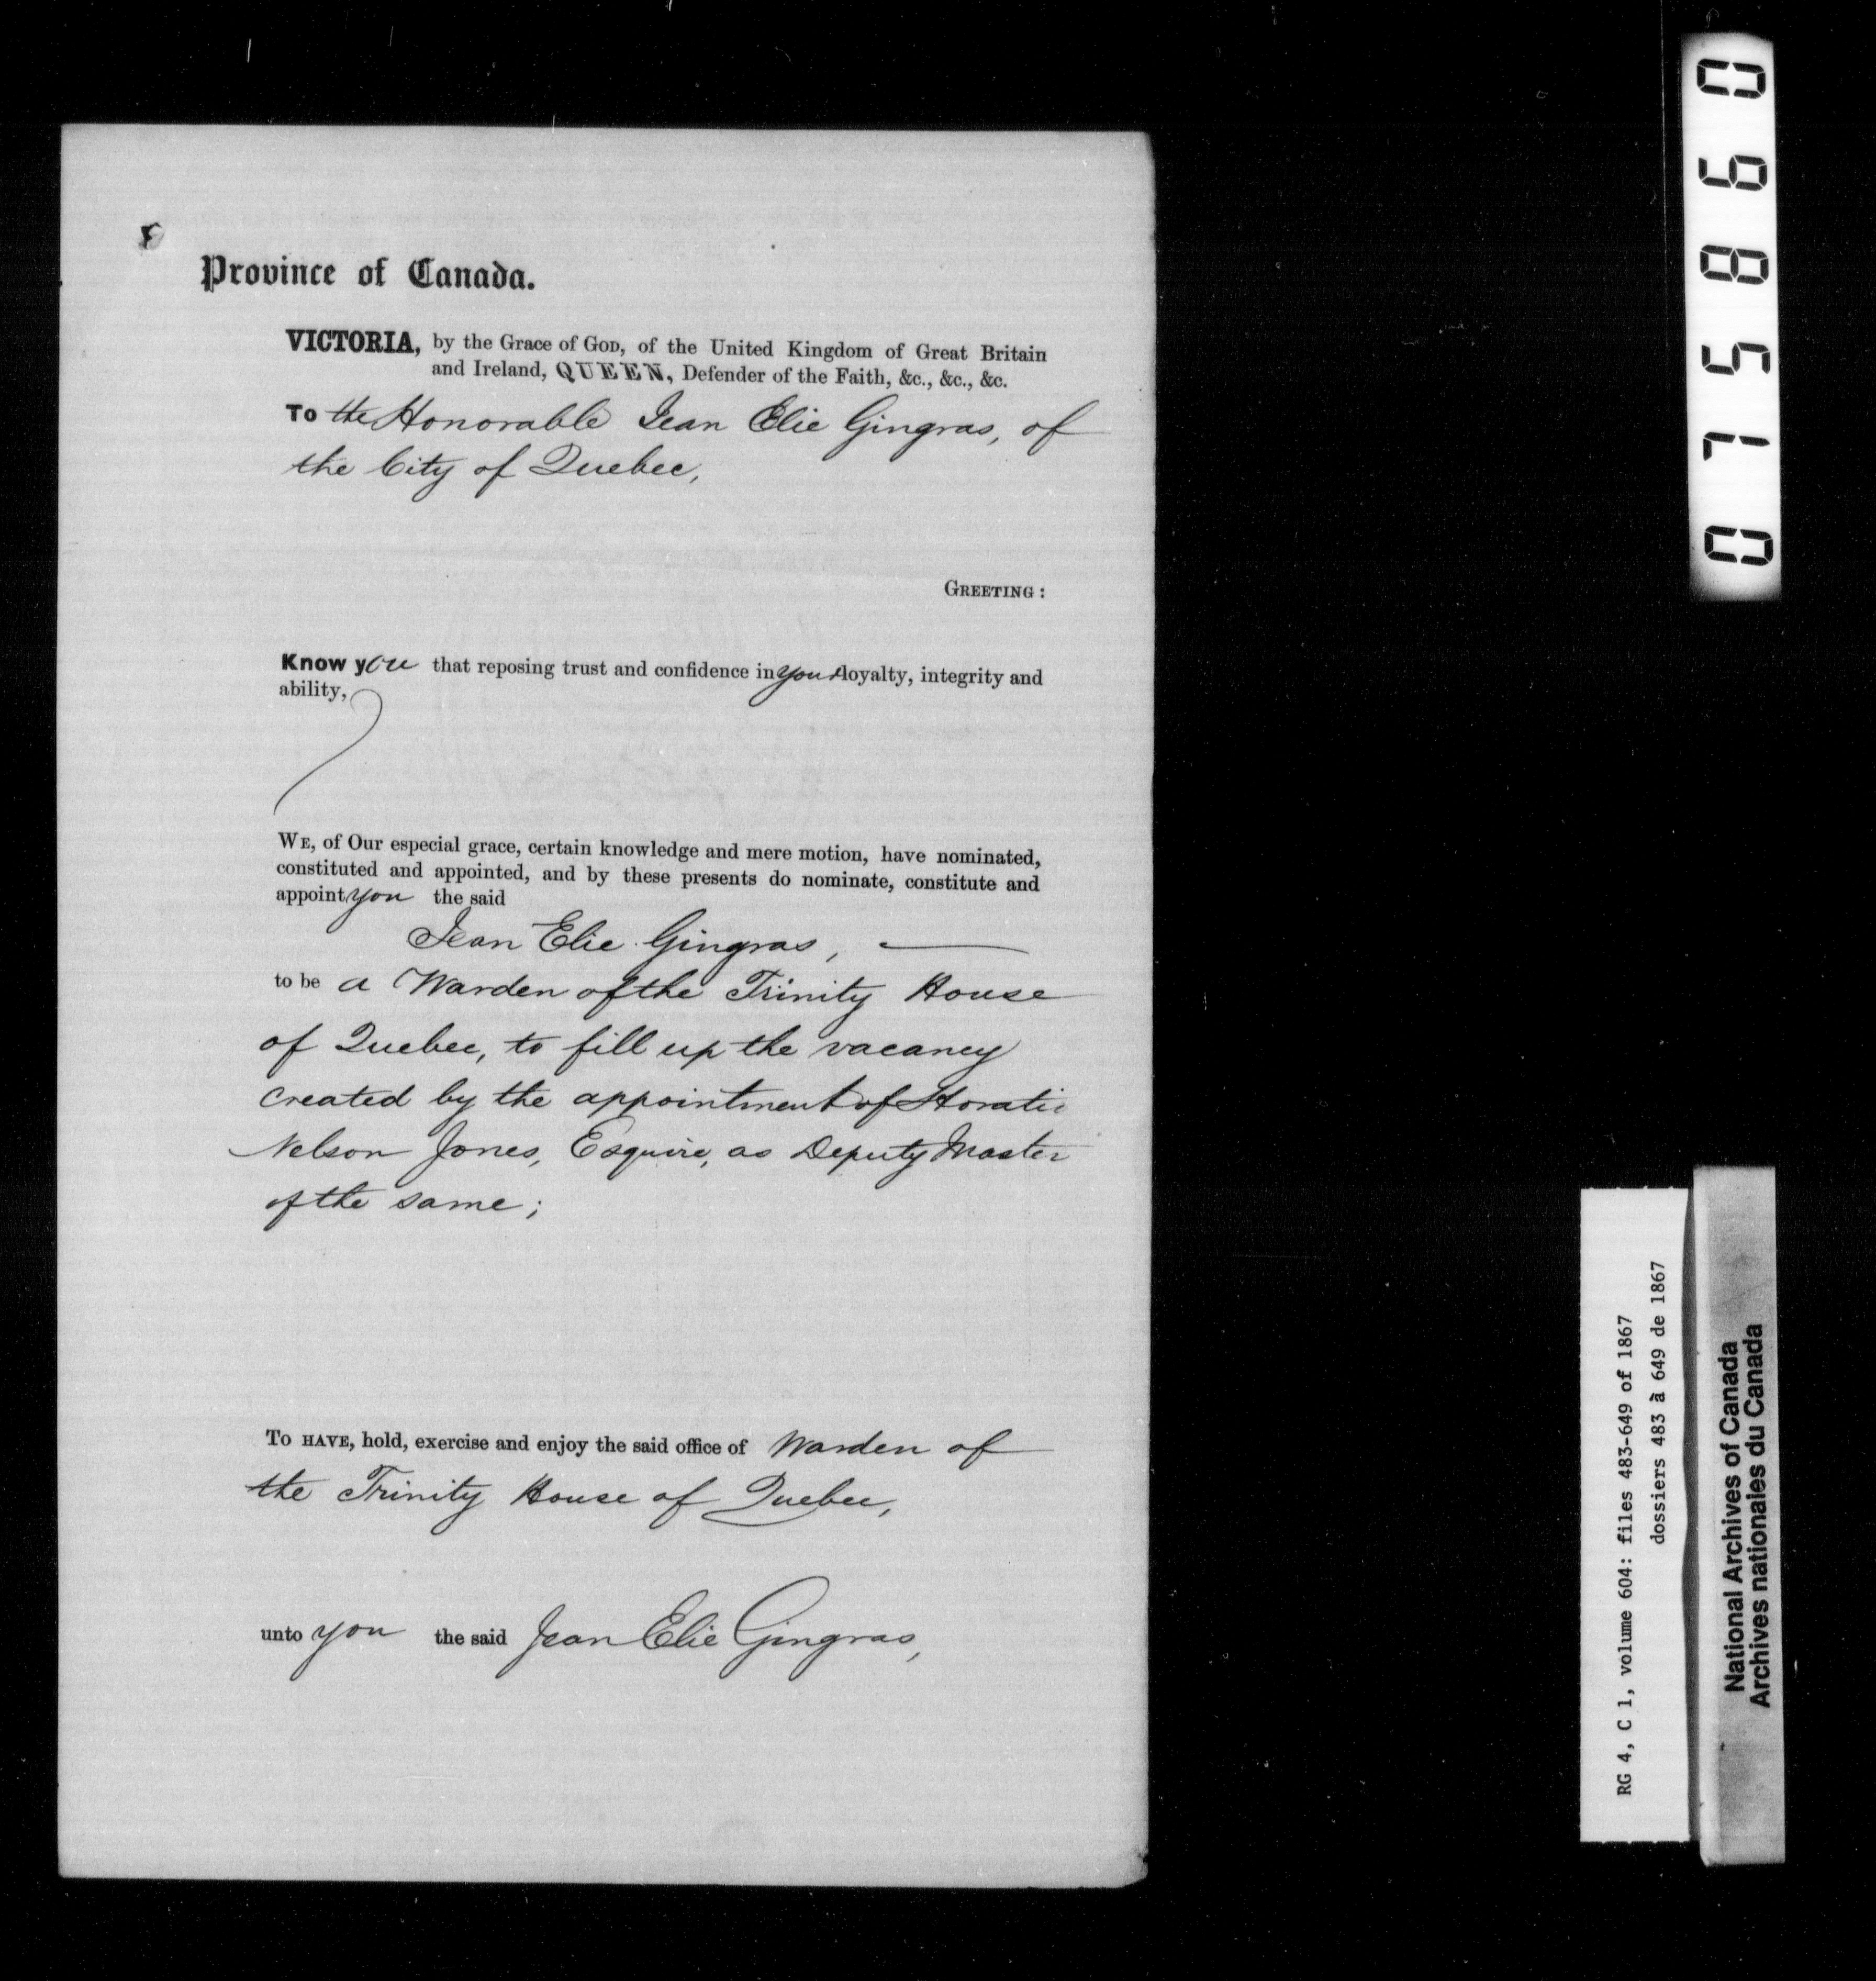 Province of Canada.
VICTORIA, by the Grace of GOD, of the United Kingdom of Great Britain
and Ireland, QUEEN, Defender of the Faith, &c., &c., &c.
To the Honorable Jean Elie Gingras, of
the City of Quebec,
GREETING :
Know you that reposing trust and confidence in your loyalty, integrity and
ability,
WE, of Our especial grace, certain knowledge and mere motion, have nominated,
constituted and appointed, and by these presents do nominate, constitute and
appoint you the said
Jean Elie Gingras,
to be a Warden of the Trinity House
of Quebec, to fill up the vacancy
created by the appointment of Horatio
Nelson Jones, Esquire, as Deputy Master
of the same;
To HAVE, hold, exercise and enjoy the said office of Warden of
the Trinity House of Quebec,
unto you the said Jean Elie Gingras,
075860
RG 4, C 1, volume 604: files 483-649 of 1867
dossiers 483 à 649 de 1867
National Archives of Canada
Archives nationales du Canada